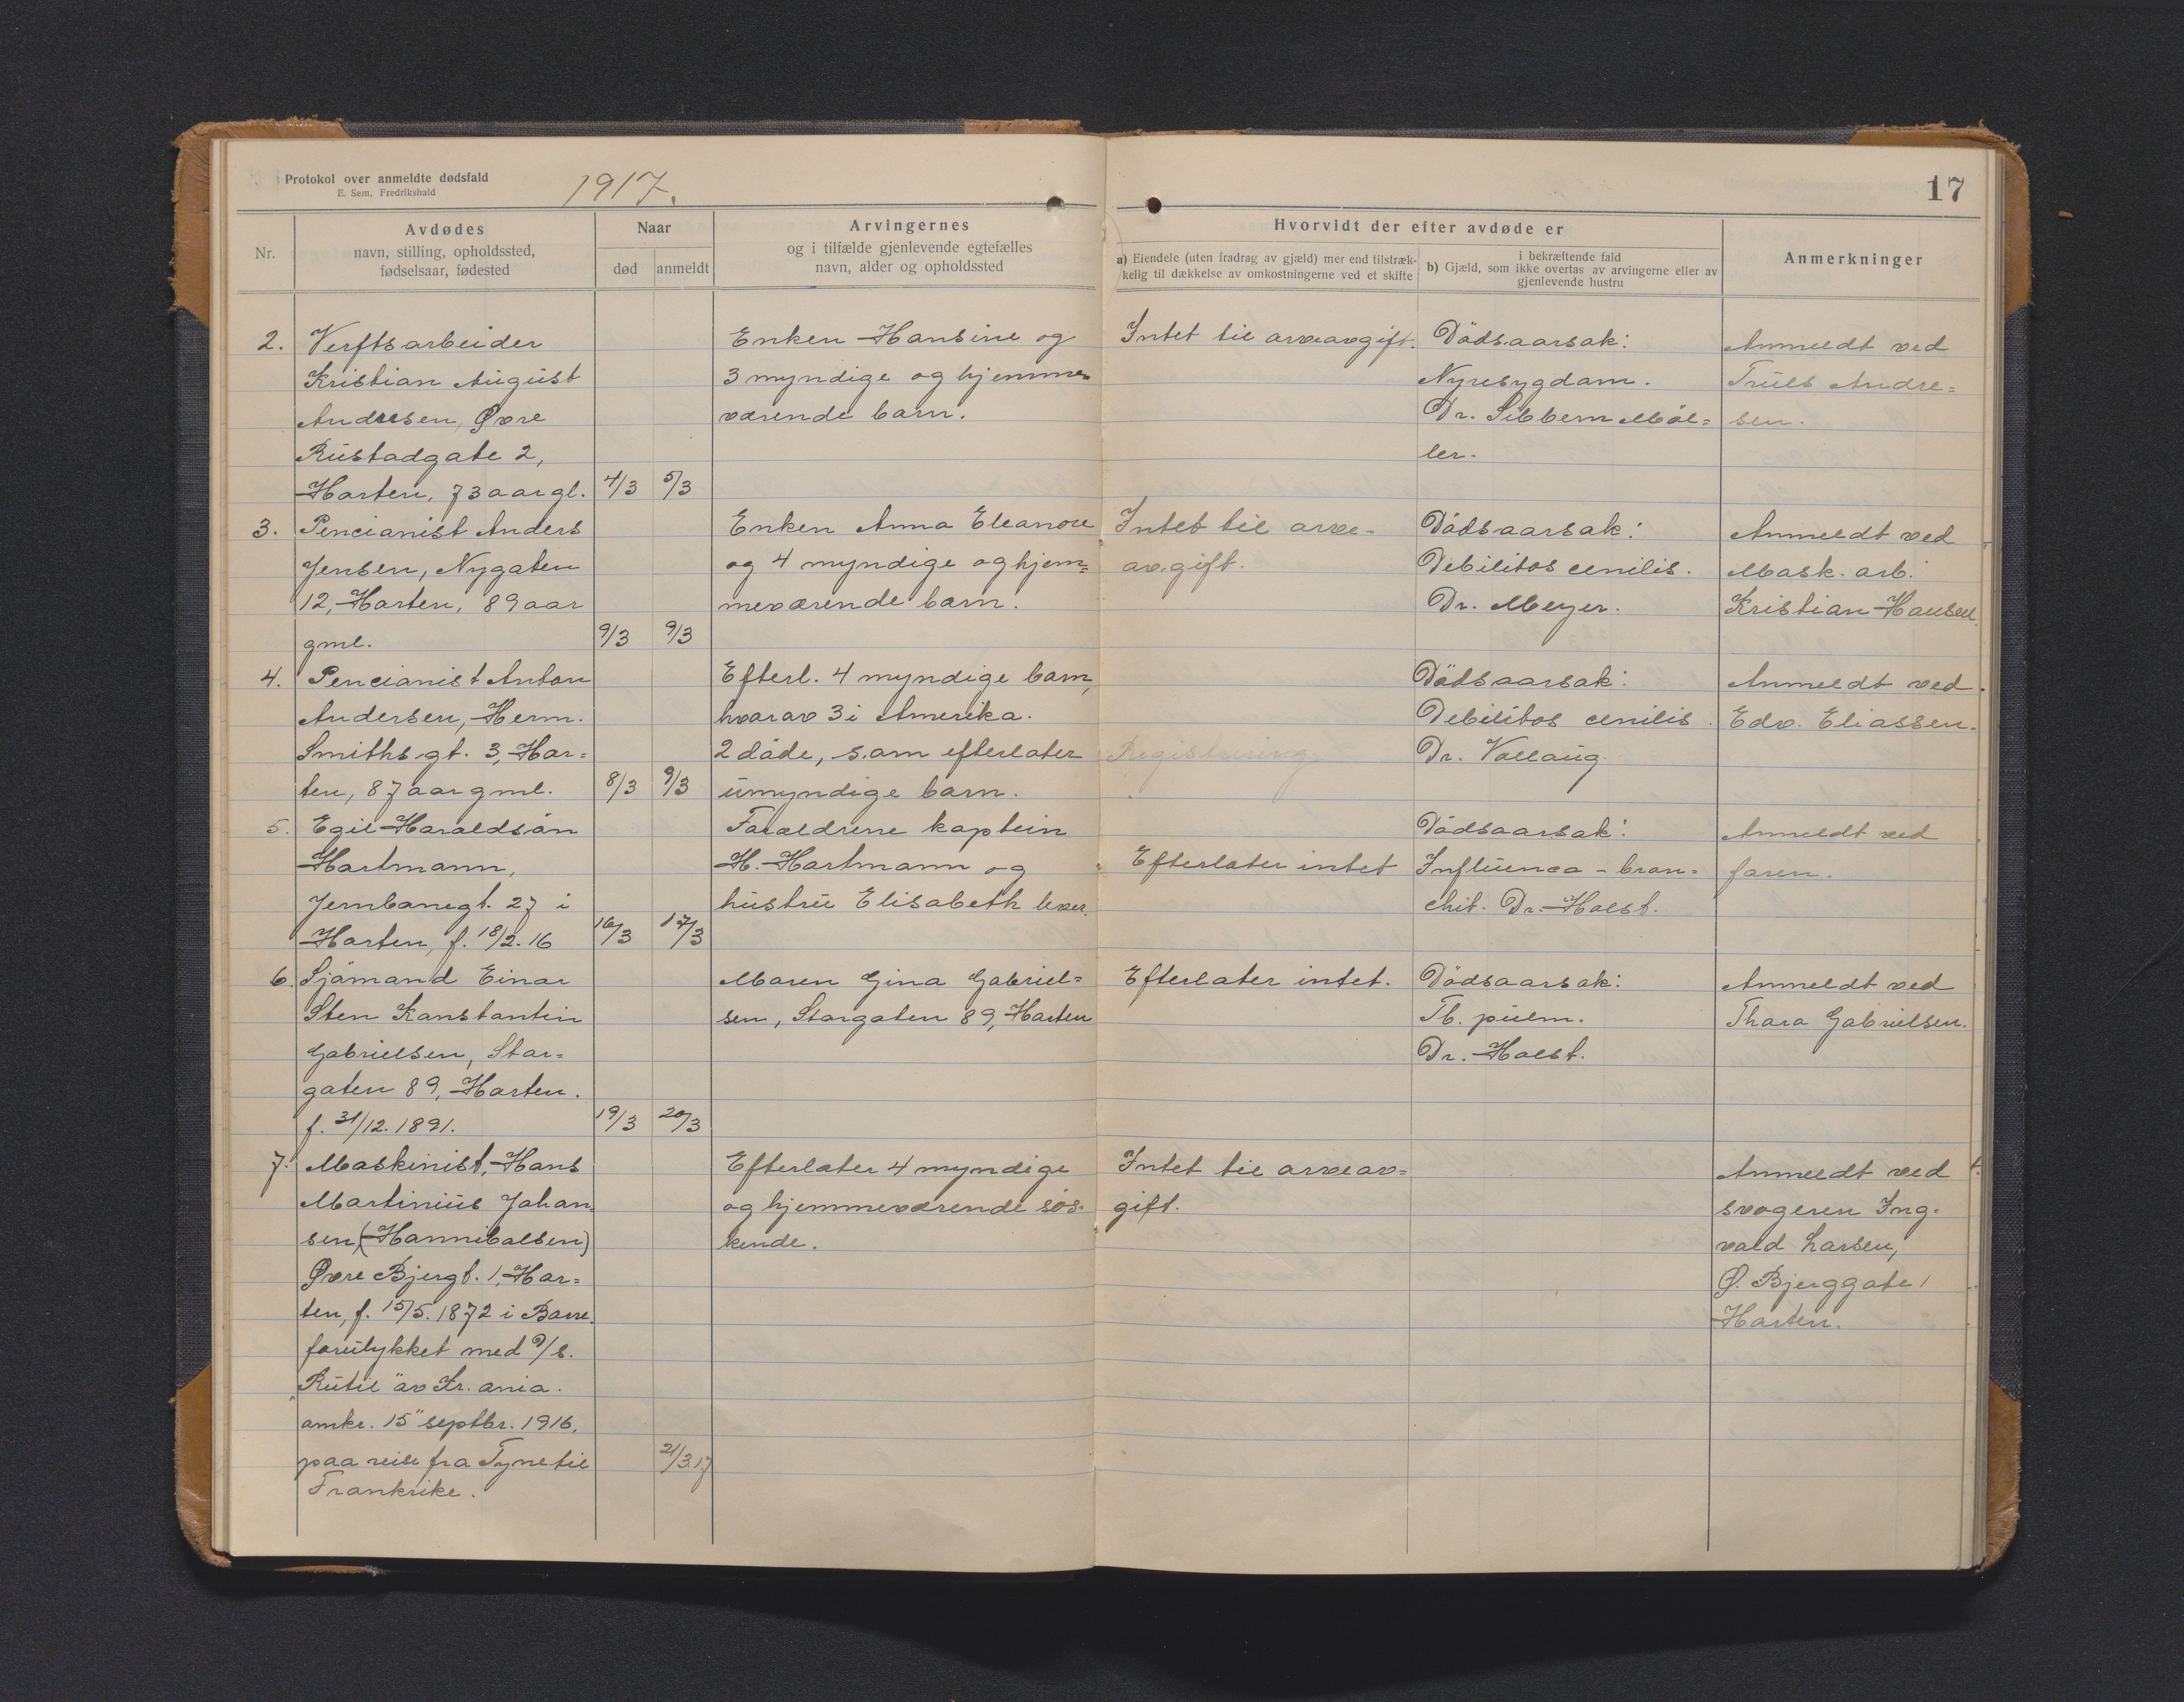 Protokol over anmeldte dødsfald
E. Sem, Fredrikshald
1917.
17
Nr.
Avdødes
navn, stilling, opholdssted,
fødselsaar, fødested
Naar
død
anmeldt
Arvingernes
og i tilfælde gjenlevende egtefælles
navn, alder og opholdssted
Hvorvidt der efter avdøde er
a) Eiendele (uten fradrag av gjæld) mer end tilstræk-
kelig til dækkelse av omkostningerne ved et skifte
i bekræftende fald
b) Gjæld, som ikke overtas av arvingerne eller av
gjenlevende hustru
Anmerkninger
2.
Verftsarbeider
Kristian August
Andresen, Øvre
Rustadgate 2,
Horten, 73 aar gl.
4/3
5/3
Enken Hansine og
3 myndige og hjemme=
værende barn.
Intet til arveavgift.
Dödsaarsak:
Nyresygdom.
Dr. Sibbern Möl=
ler.
Anmeldt ved
Truls Andre=
sen.
3.
Pencionist Anders
Jensen, Nygaten
12, Horten, 89 aar
gml.
9/3
9/3
Enken Anna Eleonore
og 4 myndige og hjem=
meværende barn.
Intet til arve-
avgift.
Dödsaarsak:
Debilitos cenilis.
Dr. Meyer.
Anmeldt ved
Mask. arb.
Kristian Hansen.
4.
Pencionist Anton
Andersen, Herm.
Smiths gt. 3, Hor=
ten, 87 aar gml.
8/3
9/3
Efterl. 4 myndige barn,
hvorav 3 i Amerika.
2 döde, som efterlater
umyndige barn.
Registrering
Dödsaarsak:
Debilitos cenilis.
Dr. Vollaug.
Anmeldt ved
Edv. Eliassen.
5.
Egil Haraldsön
Hartmann,
Jernbanegt. 27 i
Horten, f. 18/2. 16
16/3
17/3
Forældrene kaptein
H. Hartmann og
hustru Elisabeth lever.
Efterlater intet
Dödsaarsak:
Influenca - bron=
chit. Dr. Holst.
Anmeldt ved
faren.
6.
Sjömand Einar
Sten Konstantin
Gabrielsen, Stor=
gaten 89, Horten.
f. 31/12. 1891.
19/3
20/3
Maren Gina Gabriel=
sen, Storgaten 89, Horten
Efterlater intet.
Dödsaarsak:
Tb. pulm.
Dr. Holst.
Anmeldt ved
Thora Gabrielsen.
7.
Maskinist, Hans
Martinius Johan=
sen, (Hannibalsen)
Øvre Bjergt. 1, Hor=
ten, f. 15/5. 1872 i Borre.
forulykket med D/s.
"Rutil" av Kr.ania.
omkr. 15" septbr. 1916,
paa reise fra Tyne til
Frankrike.
21/3.17
Efterlater 4 myndige
og hjemmeværende sös=
kende.
Intet til arveav=
gift.
Anmeldt ved
svogeren Ing=
vald Larsen,
Ø. Bjerggate 1
Horten.